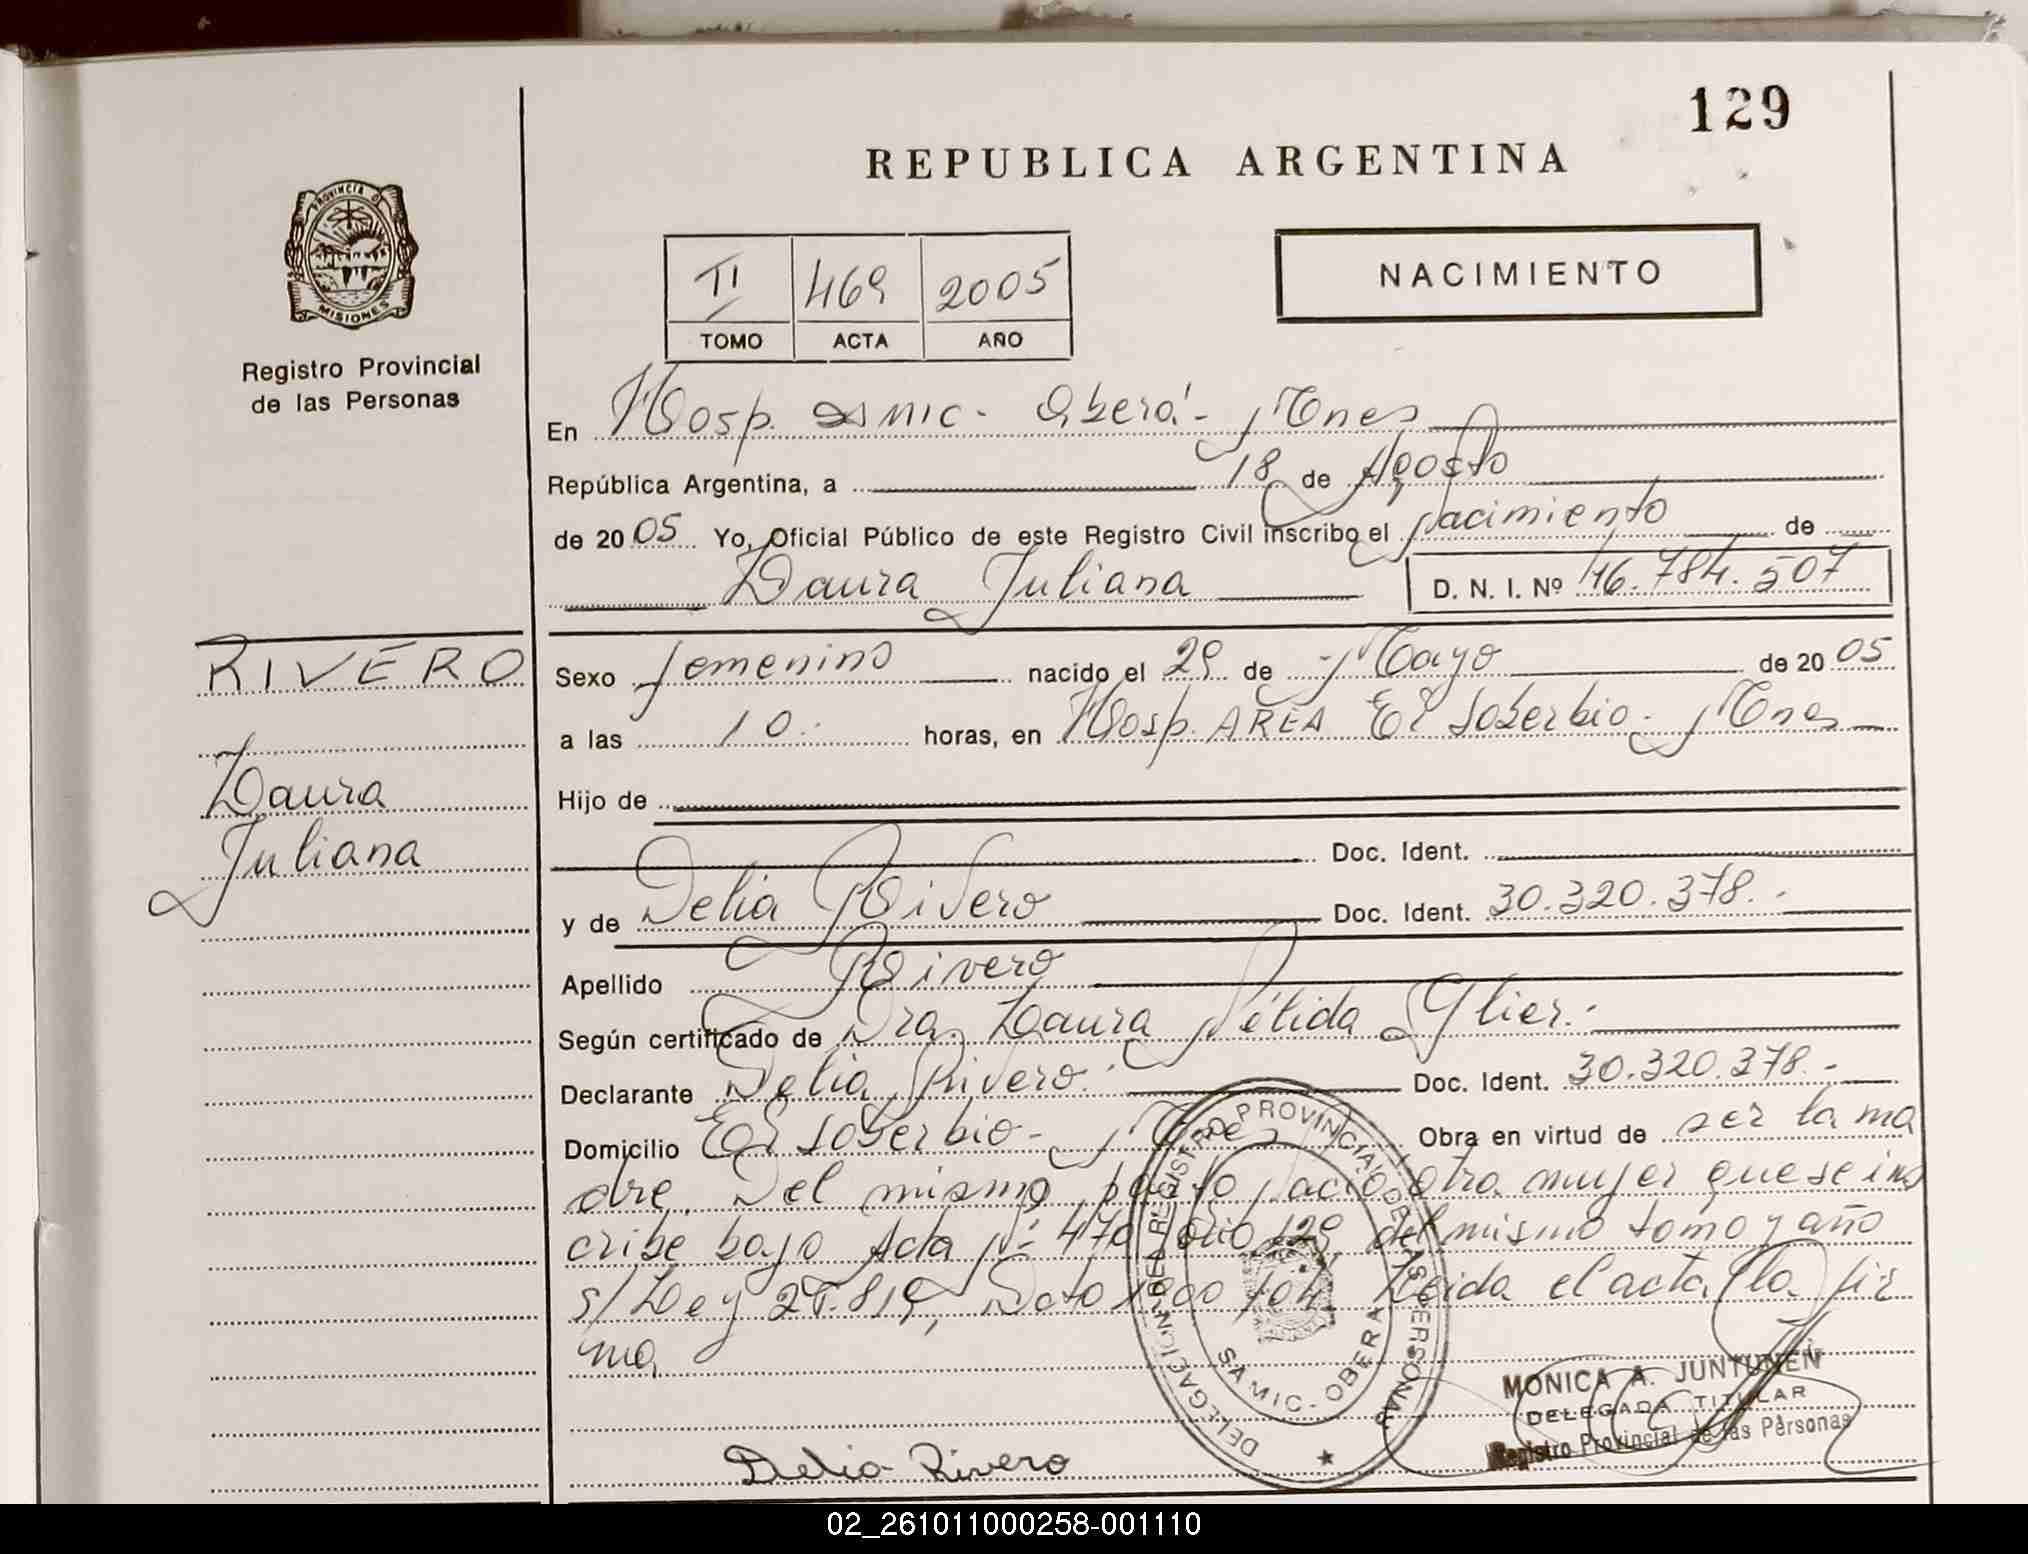 129
REPUBLICA ARGENTINA
PROVINCIA D
MISIONES
Registro Provincial
de las Personas
II 469 2005
TOMO ACTA AÑO
NACIMIENTO
En Hosp. SAMIC - Oberá - Mnes
República Argentina, a 18 de Agosto
de 2005 Yo, Oficial Público de este Registro Civil inscribo el nacimiento de
Laura Juliana D. N. I. Nº 46.784.507
RIVERO
Laura
Juliana
Sexo femenino nacido el 29 de Mayo de 2005
a las 10. horas, en Hosp. AREA El Soberbio - Mnes
Hijo de
Doc. Ident.
y de Delia Rivero Doc. Ident. 30.320.378.-
Apellido Rivero
Según certificado de Dra. Laura Nélida Glier.-
Declarante Delia Rivero.- Doc. Ident. 30.320.378.-
Domicilio El Soberbio - Mnes Obra en virtud de ser la ma
dre. Del mismo parto nació otra mujer que se ins
cribe bajo Acta Nº 470 folio 129 del mismo tomo y año
s/Ley Dcto 1900/04. Leida el acta, la fir
ma,
DELEGACION DEL REGISTRO PROVINCIAL DE LAS PERSONAS
SAMIC - OBERA
Delia Rivero
MONICA A. JUNTUNEN
DELEGADA TITULAR
Registro Provincial de las Personas
02_261011000258-001110